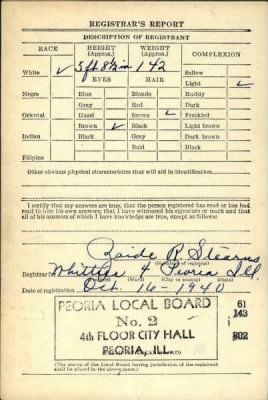 REGISTRAR'S REPORT
DESCRIPTION OF REGISTRANT
RACE HEIGHT (Approx.) WEIGHT (Approx.) COMPLEXION
White ✓ 5 ft 8½ in 142 Sallow
EYES HAIR Light ✓
Negro Blue Blonde Ruddy
Gray Red Dark
Oriental Hazel Brown ✓ Freckled
Brown ✓ Black Light brown
Indian Black Gray Dark brown
Bald Black
Filipino
Other obvious physical characteristics that will aid in identification
I certify that my answers are true; that the person registered has read or has had
read to him his own answers; that I have witnessed his signature or mark and that all
of his answers of which I have knowledge are true, except as follows:
R. Stearns
Registrar for Whittier 4 Peoria Ill.
Date of registration Oct. 16-1940
PEORIA LOCAL BOARD 61
No. 2 143
4th FLOOR CITY HALL
PEORIA, ILL.
(The stamp of the Local Board having jurisdiction of the registrant
shall be placed in the above space.)